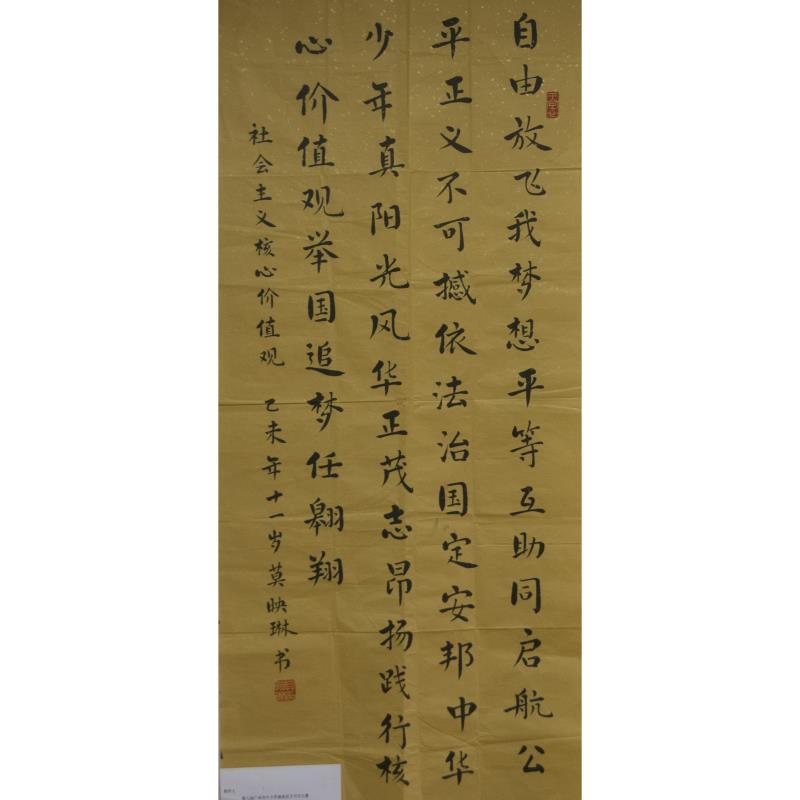 自由放飞我梦想平等互助同启航公
平正义不可撼依法治国定安邦中华
少年真阳光风华正茂志昂扬践行核
心价值观举国追梦任翱翔
社会主义核心价值观 乙未年十一岁莫映琳书